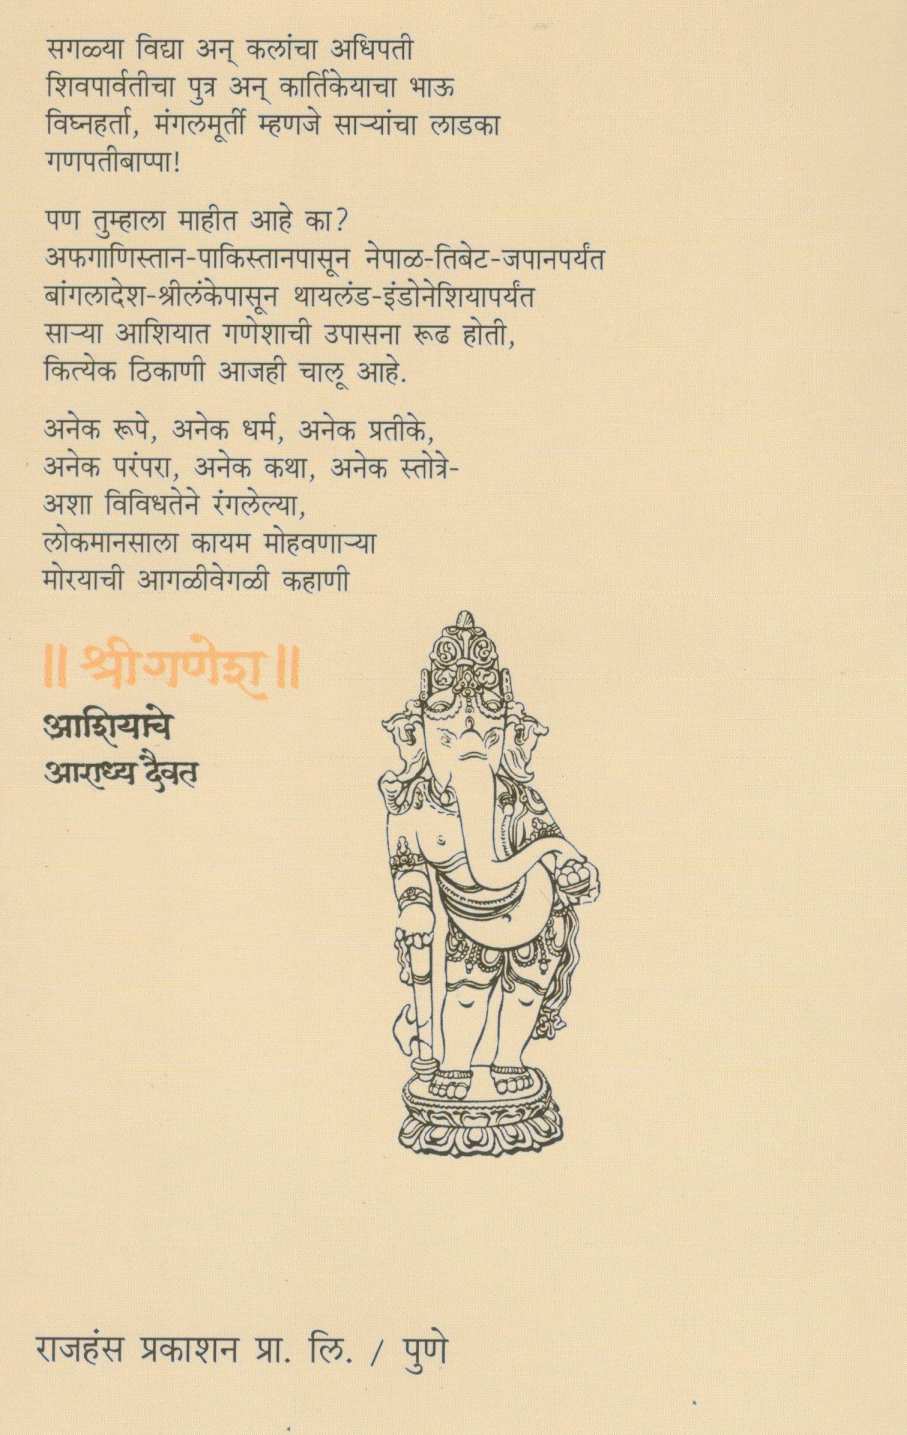 सगळ्या विद्या अन् कलांचा अधिपती
शिवपार्वतीचा पुत्र अन् कार्तिकेयाचा भाऊ
विघ्नहर्ता, मंगलमूर्ती म्हणजे साऱ्यांचा लाडका
गणपतीबाप्पा!
पण तुम्हाला माहीत आहे का?
अफगाणिस्तान-पाकिस्तानपासून नेपाळ-तिबेट-जपानपर्यंत
बांगलादेश-श्रीलंकेपासून थायलंड-इंडोनेशियापर्यंत
साऱ्या आशियात गणेशाची उपासना रूढ होती,
कित्येक ठिकाणी आजही चालू आहे.
अनेक रूपे, अनेक धर्म, अनेक प्रतीके,
अनेक परंपरा, अनेक कथा, अनेक स्तोत्रे-
अशा विविधतेने रंगलेल्या,
लोकमानसाला कायम मोहवणाऱ्या
मोरयाची आगळीवेगळी कहाणी
॥ श्रीगणेश ॥
आशियाचे
आराध्य दैवत
राजहंस प्रकाशन प्रा. लि. / पुणे